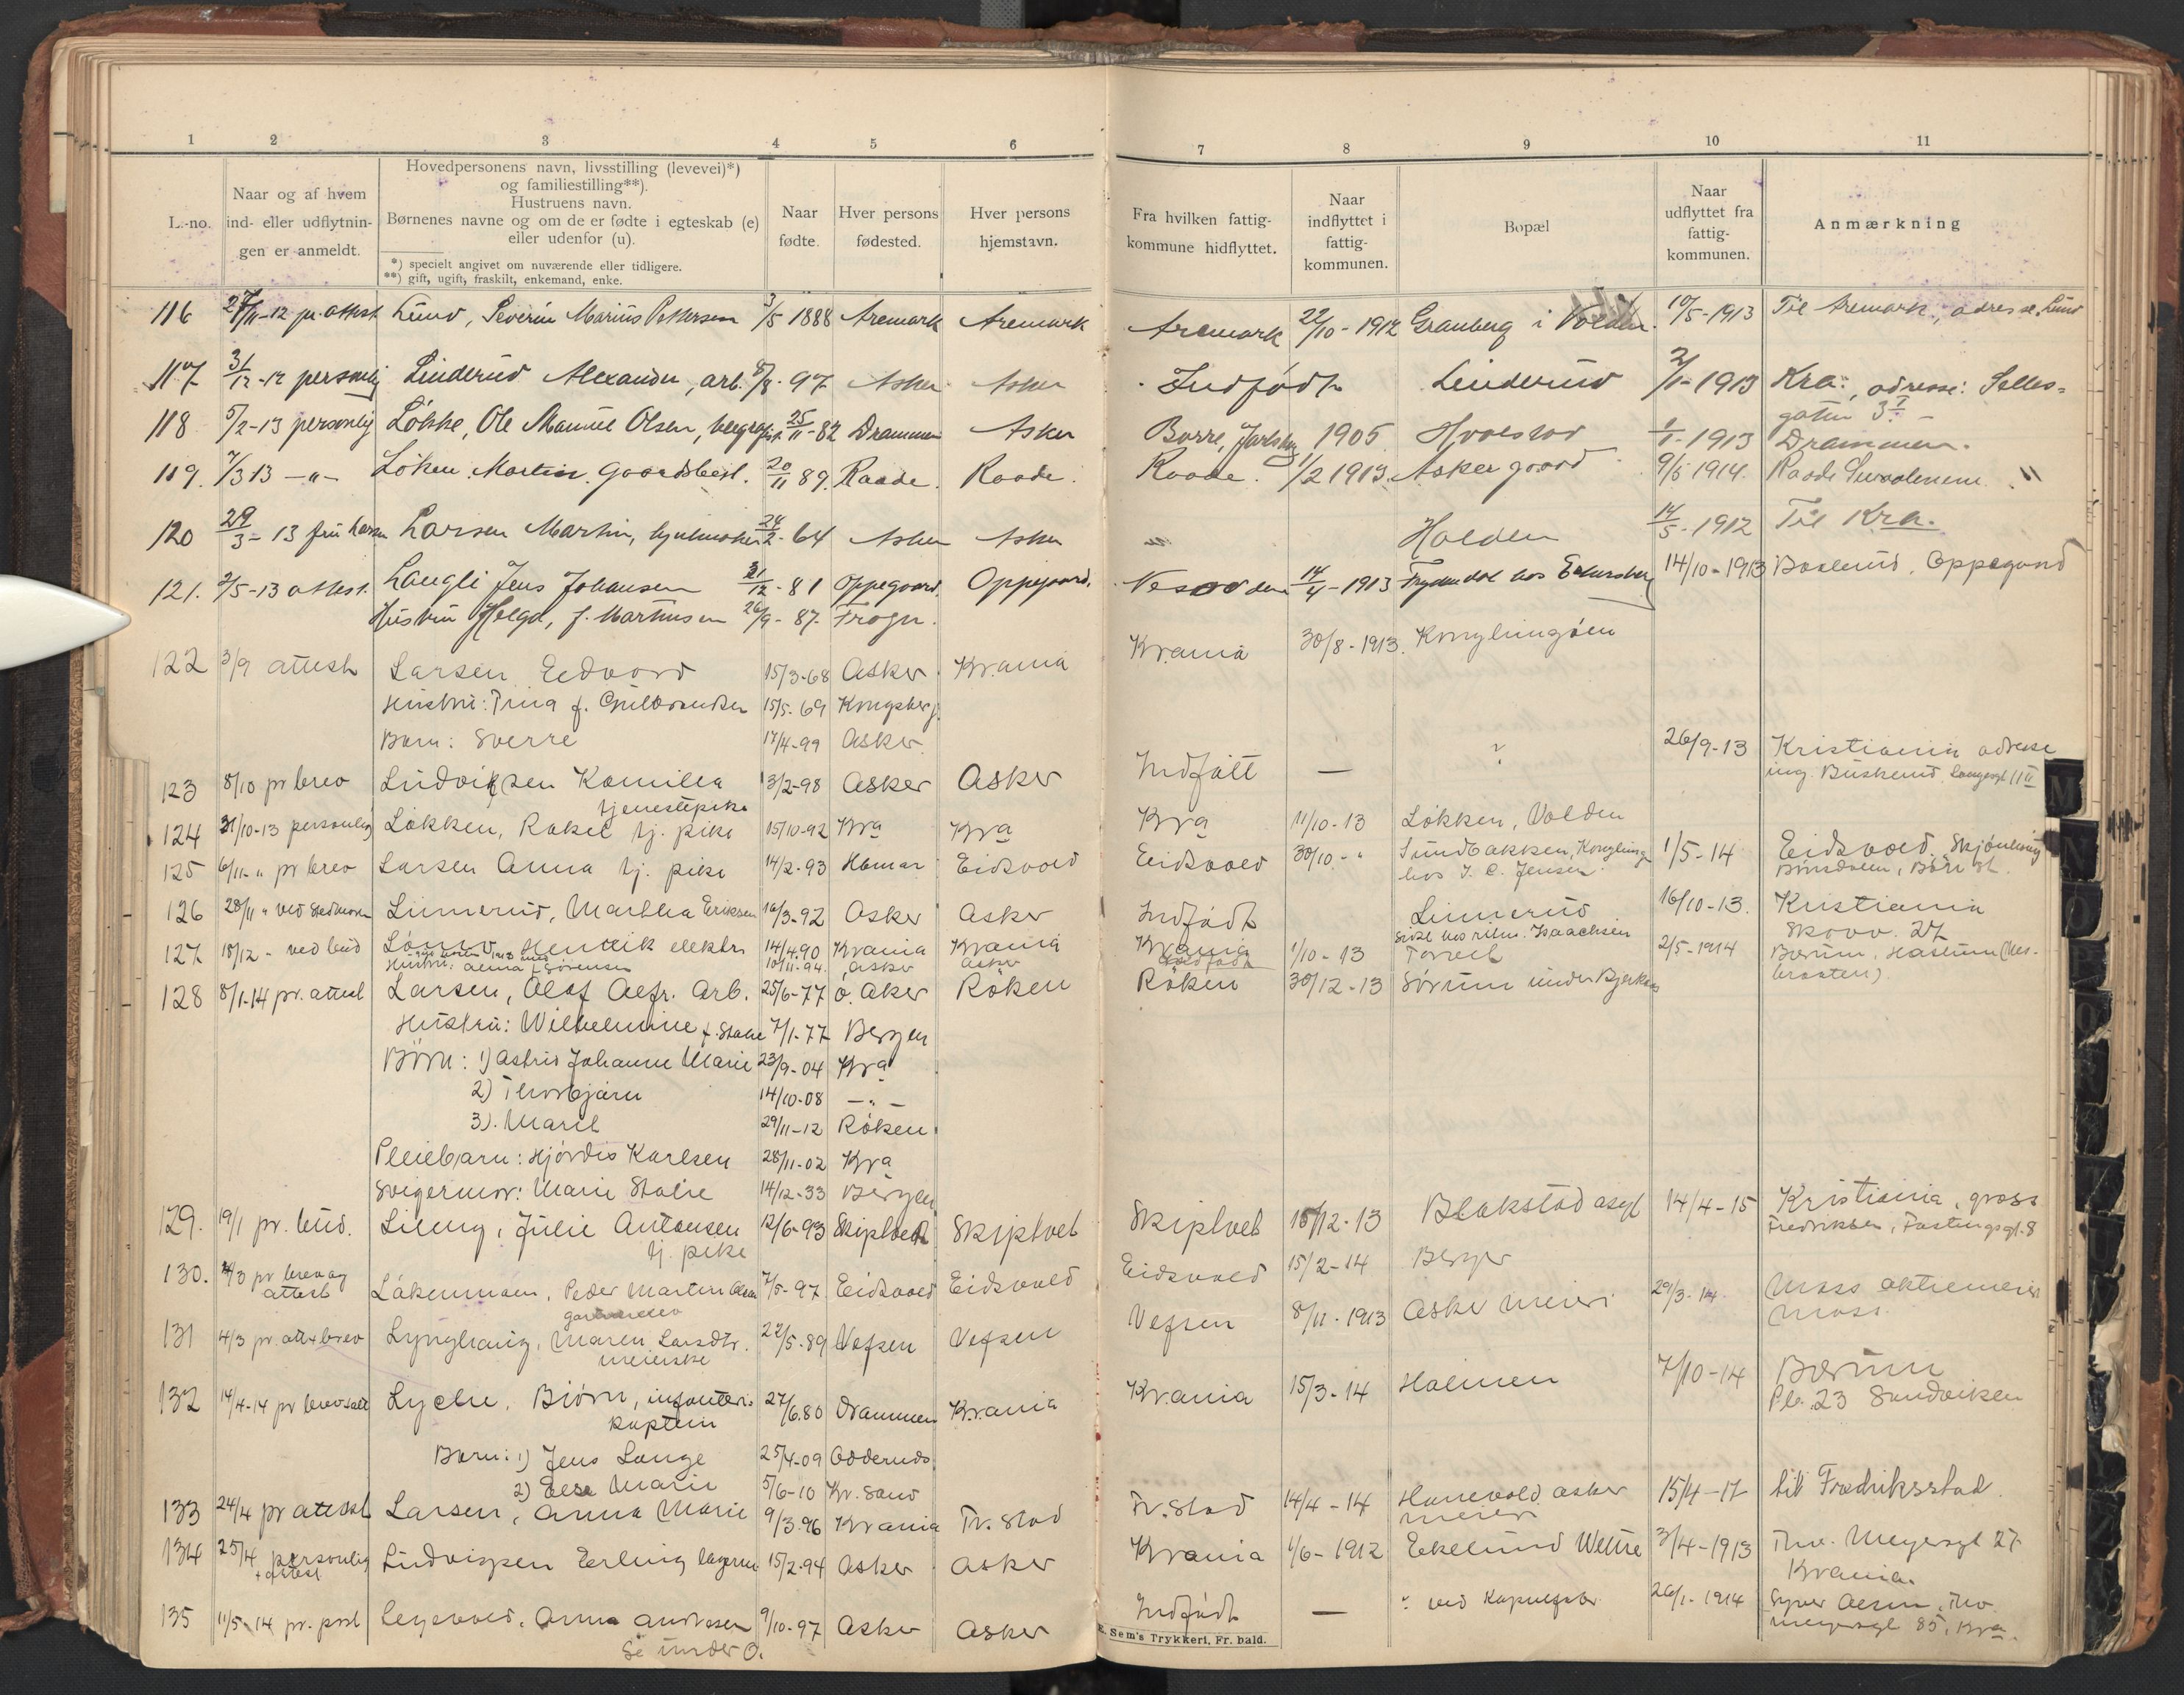 1 2 3 4 5 6 7 8 9 10 11
L.-no.
Naar og af hvem
ind- eller udflytnin-
gen er anmeldt.
Hovedpersonens navn, livsstilling (levevei)*)
og familiestilling**).
Hustruens navn.
Børnenes navne og om de er fødte i egteskab (e)
eller udenfor (u).
*) specielt angivet om nuværende eller tidligere.
**) gift, ugift, fraskilt, enkemand, enke.
Naar
fødte.
Hver persons
fødested.
Hver persons
hjemstavn.
Fra hvilken fattig-
kommune hidflyttet.
Naar
indflyttet i
fattig-
kommunen.
Bopæl
Naar
udflyttet fra
fattig-
kommunen.
Anmærkning
116 pr. attest Lund, Severin Marius Pettersen 3/5 1888 Aremark Aremark Aremark 22/10-1912 Granberg i Volden 10/5-1913 Til Aremark, adresse Lund
117 31/12-12 personlig Linderud Alexander, arb. 97 Asker Asker Indfødt Linderud 2/1-1913 Kra: adresse: Selles=
gaten 3
118 5/2-13 personlig Løkke, Ole Manuel Olsen, 25/11-82 Drammen Asker Borre, Jarlsberg 1905 Hvalstad 1/1-1913 Drammen.
119. 7/3 13 -"- Løken Martin, Gaardsbest. 20/11 89. Raade. Raade. Raade. 1/2 1913. Asker gaard 9/5 1914. Raade
120 29/3-13 fru Larsen Larsen Martin, hjulmaker 24/2-64 Asker Asker Holden 14/5-1912 Til Kra.
121. 2/5-13 attest. Langli Jens Johansen 31/12-81 Oppegaard. Oppegaard. Nesodden 14/4-1913 Frydendal hos 14/10-1913 Oppegaard
Hustru Helga, f. Martinsen 26/9-87. Frogn.
122 3/9 attest Larsen Edvard 15/3-68 Asker Kr.ania Kr.ania 30/8-1913. Konglungøen
Hustru: Trina f. Gulbrandsen 15/5-69 Kongsberg
Barn: Sverre 17/4-99 Asker.
123 8/10 pr brev Ludvigsen Kamilla 13/2-98 Asker Asker Indfødt — ? 26/9-13 Kristiania adresse
tjenestepike ing. Buskerud, Langesgt 11 II
124 31/10-13 personlig Løkken, Rakel tj. pike 15/10-92 Kra Kra Kra 11/10-13 Løkken, Volden
125 6/11-" pr brev Larsen Anna tj. pike 14/2-93 Hamar Eidsvold Eidsvold 30/10-" Sundbakken, Konglung 1/5-14 Eidsvold.
hos J. C. Jensen
126 28/11 " Linnerud, Martha Eriksen 16/3-92 Asker Asker Indfødt Linnerud 16/10-13. Kristiania
sidst hos Isaachsen Skovv. 27
127 18/12-" ved bud Henrik elektr. 14/4.90 Kr.ania Kr.ania Kr.ania 1/10-13 Torvet 2/5-1914 Bærum, Haslum
Hustru: Anna f. Sørensen 10/11-94. Asker Asker
128 8/1-14 pr. attest Larsen, Olaf Alfr. Arb. 25/6-77 Ø. Aker Røken Røken 30/12-13 Sørum under Bjerkaas
Hustru: Wilhelmine 7/1-77 Bergen
Børn: 1) Astrid Johanne Marie 23/9-04 Kra
2) Thorbjørn 14/10-08 -"-
3). Marit 29/11-12 Røken
Pleiebarn: Hjørdis Karlsen 28/11-02 Kra
Svigermor: Marie 14/12-33 Bergen
129. 19/1 pr. bud. Julie Antonsen 12/6-93 Skiptvet Skiptvet Skiptvet 15/12-13 Blakstad asyl 14/4-15 Kristiania, gross
tj. pike Fredriksen, Fastingsgt. 8
130. 2/3 pr brev og Løkenmoen, Peder Martin Olsen 7/5-97 Eidsvold Eidsvold Eidsvold 15/2-14 Berger
attest
131 4/3 pr. att+brev Lynghaug, Maren Larsdtr. 22/5-89 Vefsen Vefsen Vefsen 8/11-1913 Asker meieri 29/3-14 Moss aktiemeieri
meierske Moss.
132 14/4-14 pr brev+att Lyche, Biørn, infanteri- 27/6.80 Drammen Kr.ania Kr.ania 15/3-14 Holmen 7/10-14 Bærum
kaptein Pb. 23 Sandviken
Barn: 1) Jens Lange 25/4-09 Oddernes
2) Else Marie 5/6-10 Kr. Sand
133 24/4 pr attest Larsen, Anna Marie 9/3.96 Kr.ania Fr. Stad Fr. Stad 14/4-14 Hanevold Asker 15/4-17 til Fredriksstad.
meieri
134 25/4 personlig Ludvigsen Erling 15/2-94 Asker Asker Kr.ania 1/6-1912 Ekelund Wettre 3/4-1913 Thv. Meyersgt 27.
+ attest Kr.ania.
135 11/5-14 pr. post Anna Andresen 9/10-97 Asker Asker Indfødt — " ved Kapselfabr. 26/1-1914 Thv.
Se under O. Meyersgt 85, Kra.
E. Sem's Trykkeri, Fr. hald.
M